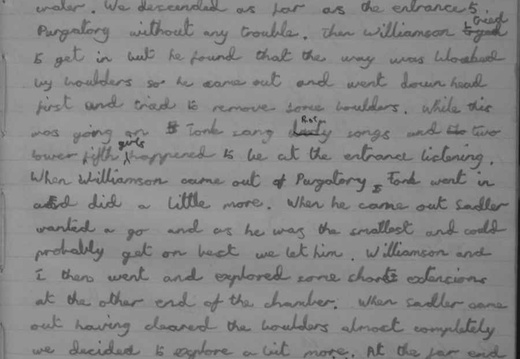 water. We descended as far as the entrance to
Purgatory without any trouble. Then Williamson tried
to get in but he found that the way was blocked
by boulders so he came out and went down head
first and tried to remove some boulders. While this
was going on Tonk sang songs and two
lower fifth girls happened to be at the entrance listening.
When Williamson came out of Purgatory, Tonk went in
and did a little more. When he came out Sadler
wanted a go and as he was the smallest and could
probably get on best we let him. Williamson and
I then went and explored some short extensions
at the other end of the chamber. When Sadler came
out having cleared the boulders almost completely
we decided to explore a bit more. At the far end